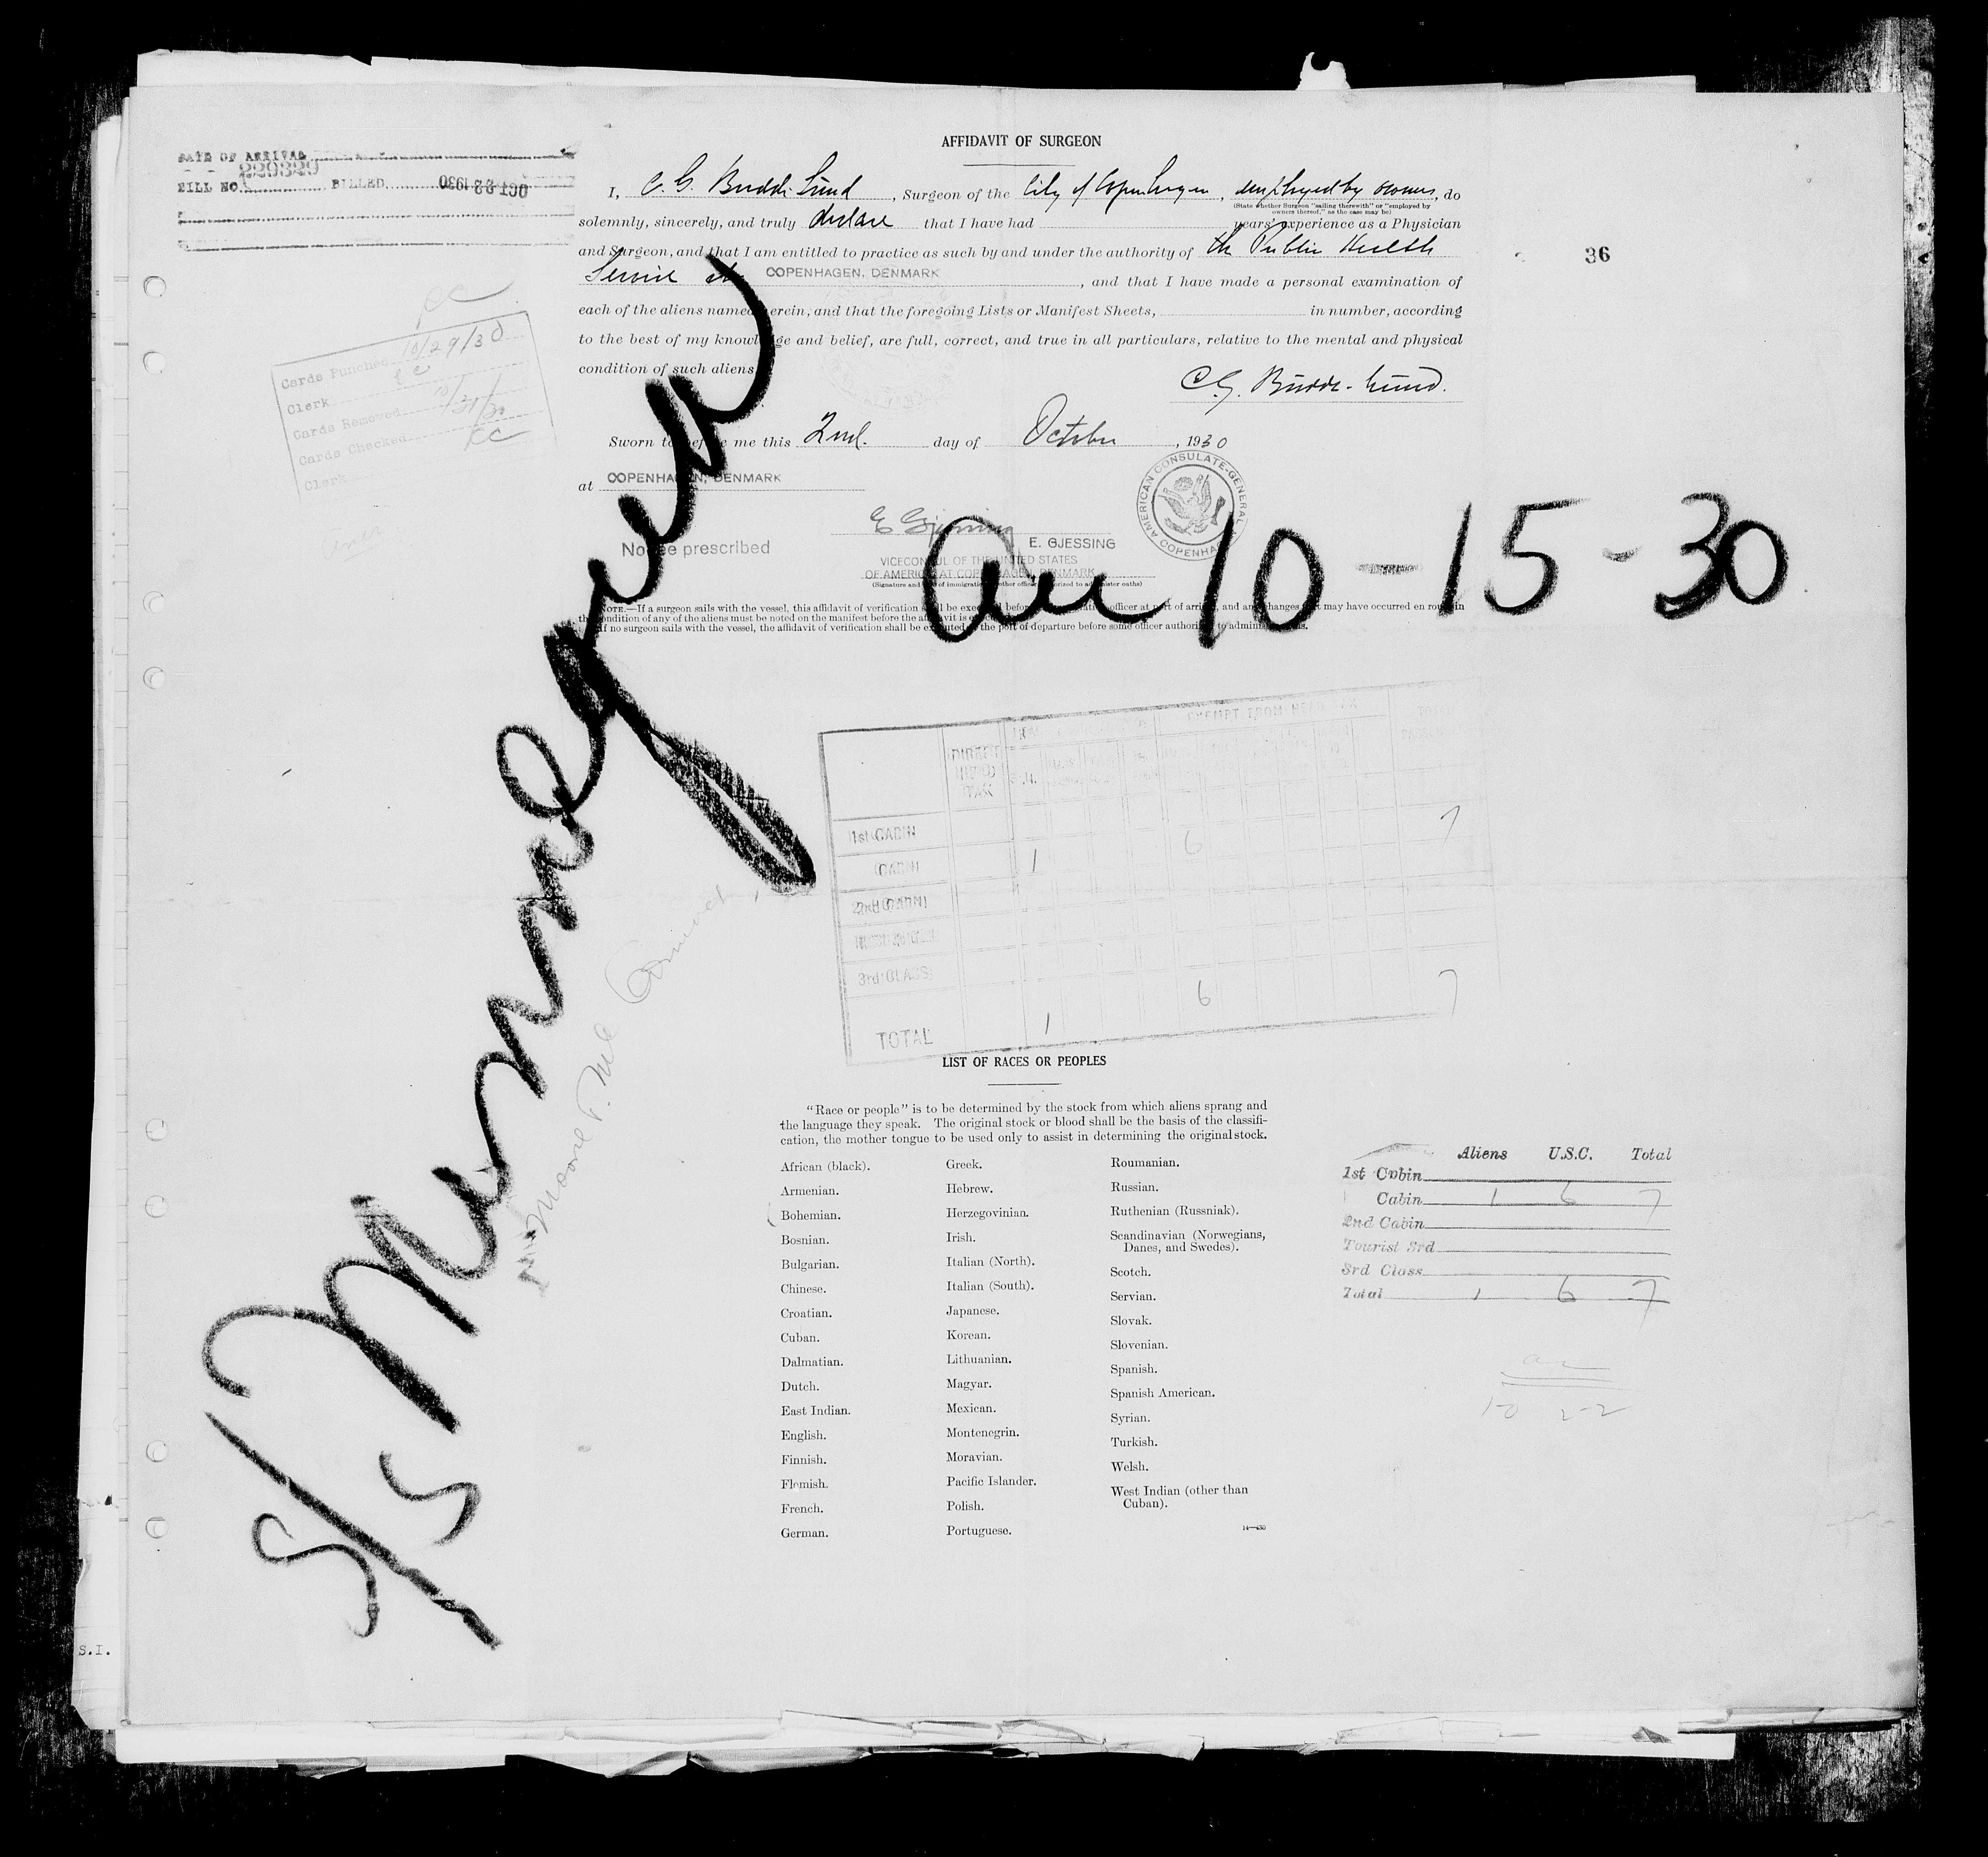 AFFIDAVIT OF SURGEON
DATE OF ARRIVAL
229329
BILL NO. BILLED OCT 23 1930
I, C. G. Budde-Lund, Surgeon of the City of Copenhagen, employed by owners, do
(State whether Surgeon "sailing therewith" or "employed by
owners thereof," as the case may be)
solemnly, sincerely, and truly declare that I have had years' experience as a Physician
and Surgeon, and that I am entitled to practice as such by and under the authority of the Public Health
Service at COPENHAGEN, DENMARK, and that I have made a personal examination of
each of the aliens named herein, and that the foregoing Lists or Manifest Sheets, in number, according
to the best of my knowledge and belief, are full, correct, and true in all particulars, relative to the mental and physical
condition of such aliens
C. G. Budde-Lund.
36
CC
Cards Punched 10/29/30
Clerk CC
Cards Removed 10/31/30
Cards Checked CC
Clerk
Sworn to before me this 2nd. day of October, 1930
at COPENHAGEN, DENMARK
AMERICAN CONSULATE-GENERAL COPENHAGEN
E Gjessing
No fee prescribed
E. GJESSING
VICECONSUL OF THE UNITED STATES
OF AMERICA AT COPENHAGEN, DENMARK
(Signature and title of immigration or other officer authorized to administer oaths)
arr 10-15-30
NOTE.—If a surgeon sails with the vessel, this affidavit of verification shall be executed before immigration officer at port of arrival, and any changes that may have occurred en route in
the condition of any of the aliens must be noted on the manifest before the affidavit is executed.
If no surgeon sails with the vessel, the affidavit of verification shall be executed at the port of departure before some officer authorized to administer oaths.
S/S
EXEMPT FROM HEAD TAX
DIRECT
HEAD
TAX
TOTAL
1st CABIN 7
CABIN 1 6
2nd CABIN
3rd CLASS
6 7
TOTAL 1
Moore & McCormack
LIST OF RACES OR PEOPLES
"Race or people" is to be determined by the stock from which aliens sprang and
the language they speak. The original stock or blood shall be the basis of the classifi-
cation, the mother tongue to be used only to assist in determining the original stock.
African (black).
Armenian.
Bohemian.
Bosnian.
Bulgarian.
Chinese.
Croatian.
Cuban.
Dalmatian.
Dutch.
East Indian.
English.
Finnish.
Flemish.
French.
German.
Greek.
Hebrew.
Herzegovinian.
Irish.
Italian (North).
Italian (South).
Japanese.
Korean.
Lithuanian.
Magyar.
Mexican.
Montenegrin.
Moravian.
Pacific Islander.
Polish.
Portuguese.
Roumanian.
Russian.
Ruthenian (Russniak).
Scandinavian (Norwegians,
Danes, and Swedes).
Scotch.
Servian.
Slovak.
Slovenian.
Spanish.
Spanish American.
Syrian.
Turkish.
Welsh.
West Indian (other than
Cuban).
Aliens U.S.C. Total
1st Cabin
Cabin 1 6 7
2nd Cabin
Tourist 3rd
3rd Class
Total 1 6 7
S.I.